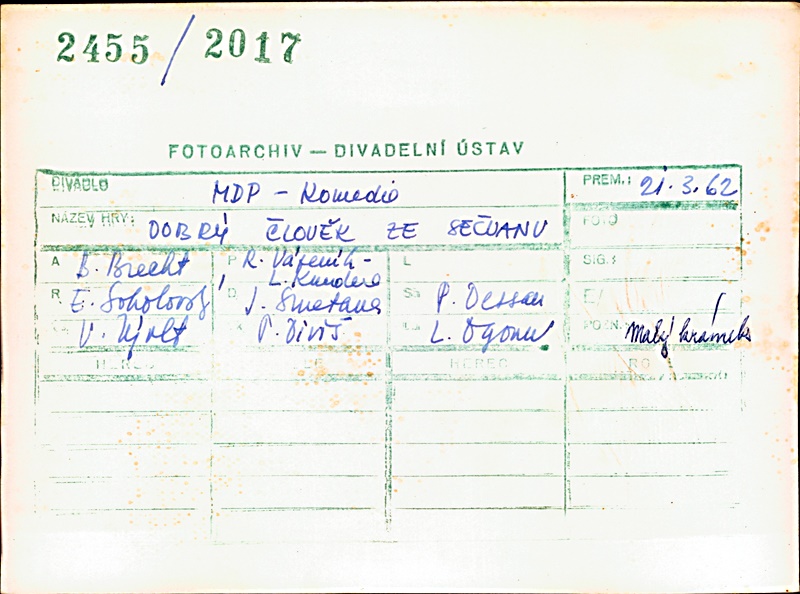 2455 / 2017
FOTOARCHIV — DIVADELNÍ ÚSTAV
DIVADLO MDP - Komedie PREM.: 21.3.62
NÁZEV HRY: DOBRÝ ČLOVĚK ZE SEČUANU FOTO
A B. Brecht P R. Vápeník - L. Kundera L SIG.:
R E. Sokolovský J. Smetana P. Dessau
V. P. Diviš L. POZN. Malý krámek
HEREC HEREC